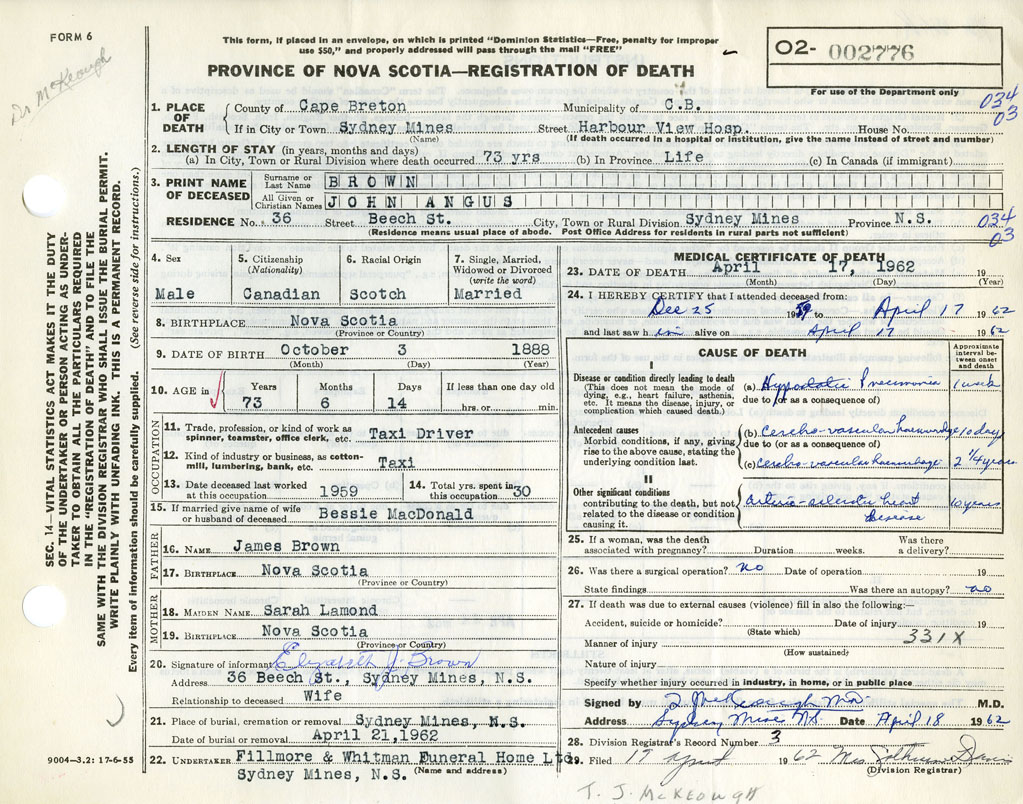 FORM 6
Dr McKeough
This form, if placed in an envelope, on which is printed "Dominion Statistics—Free, penalty for improper
use $50," and properly addressed will pass through the mail "FREE"
PROVINCE OF NOVA SCOTIA—REGISTRATION OF DEATH
02- 002776
For use of the Department only
034
03
1. PLACE OF DEATH
County of Cape Breton Municipality of C.B.
If in City or Town Sydney Mines Street Harbour View Hosp. House No.
(Name) (If death occurred in a hospital or institution, give the name instead of street and number)
2. LENGTH OF STAY (in years, months and days)
(a) In City, Town or Rural Division where death occurred 73 yrs (b) In Province Life (c) In Canada (if immigrant)
3. PRINT NAME OF DECEASED
Surname or Last Name BROWN
All Given or Christian Names JOHN ANGUS
RESIDENCE No. 36 Street Beech St. City, Town or Rural Division Sydney Mines Province N.S.
(Residence means usual place of abode. Post Office Address for residents in rural parts not sufficient)
034
03
4. Sex
Male
5. Citizenship
(Nationality)
Canadian
6. Racial Origin
Scotch
7. Single, Married, Widowed or Divorced
(write the word)
Married
8. BIRTHPLACE Nova Scotia
(Province or Country)
9. DATE OF BIRTH October 3 1888
(Month) (Day) (Year)
10. AGE in
Years Months Days If less than one day old
73 6 14 hrs. or min.
OCCUPATION
11. Trade, profession, or kind of work as
spinner, teamster, office clerk, etc. Taxi Driver
12. Kind of industry or business, as cotton-
mill, lumbering, bank, etc. Taxi
13. Date deceased last worked
at this occupation 1959
14. Total yrs. spent in
this occupation 30
15. If married give name of wife
or husband of deceased Bessie MacDonald
FATHER
16. NAME James Brown
17. BIRTHPLACE Nova Scotia
(Province or Country)
MOTHER
18. MAIDEN NAME Sarah Lamond
19. BIRTHPLACE Nova Scotia
(Province or Country)
20. Signature of informant Elizabeth J. Brown
Address 36 Beech St., Sydney Mines, N.S.
Relationship to deceased Wife
21. Place of burial, cremation or removal Sydney Mines, N.S.
Date of burial or removal April 21,1962
22. UNDERTAKER Fillmore & Whitman Funeral Home Ltd.
Sydney Mines, N.S. (Name and address)
MEDICAL CERTIFICATE OF DEATH
23. DATE OF DEATH April 17, 1962 19
(Month) (Day) (Year)
24. I HEREBY CERTIFY that I attended deceased from:
Dec 25 1959 to April 17 1962
and last saw him alive on April 17 1962
CAUSE OF DEATH
Approximate interval between onset and death
I
Disease or condition directly leading to death
(This does not mean the mode of
dying, e.g., heart failure, asthenia,
etc. It means the disease, injury, or
complication which caused death.)
(a) Hypostatic Pneumonia 1 week
due to (or as a consequence of)
Antecedent causes
Morbid conditions, if any, giving
rise to the above cause, stating the
underlying condition last.
(b) Cerebro-vascular haemorrhage 10 days
due to (or as a consequence of)
(c) Cerebro-vascular haemorrhage 2 1/4 years
II
Other significant conditions
contributing to the death, but not
related to the disease or condition
causing it.
Arterio-sclerotic heart disease 10 years
25. If a woman, was the death
associated with pregnancy? Duration weeks. Was there
a delivery?
26. Was there a surgical operation? no Date of operation 19
State findings Was there an autopsy? no
27. If death was due to external causes (violence) fill in also the following:—
Accident, suicide or homicide? Date of injury 19
(State which)
331X
Manner of injury
(How sustained)
Nature of injury
Specify whether injury occurred in industry, in home, or in public place
Signed by J. J. McKeough M.D. M.D.
Address Sydney Mines N.S. Date April 18 1962
28. Division Registrar's Record Number 3
29. Filed 17 April 1962 Mrs
(Division Registrar)
T. J. McKEOUGH
SEC. 14—VITAL STATISTICS ACT MAKES IT THE DUTY
OF THE UNDERTAKER OR PERSON ACTING AS UNDER-
TAKER TO OBTAIN ALL THE PARTICULARS REQUIRED
IN THE "REGISTRATION OF DEATH" AND TO FILE THE
SAME WITH THE DIVISION REGISTRAR WHO SHALL ISSUE THE BURIAL PERMIT.
WRITE PLAINLY WITH UNFADING INK. THIS IS A PERMANENT RECORD.
Every item of information should be carefully supplied. (See reverse side for instructions.)
9004—3.2: 17-6-55